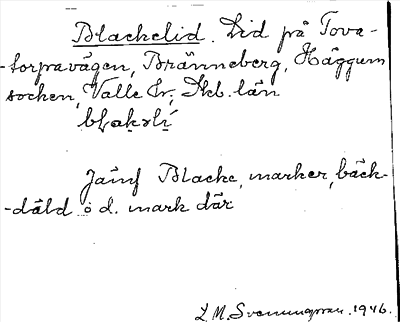 Blackelid. Lid på Tova-
-torpavägen, Bränneberg, Häggum
socken, Valle hr, Skb. län
Jämf Blacke, marker, bäck-
-däld o d. mark där
L. M. Svenungsson. 1946.